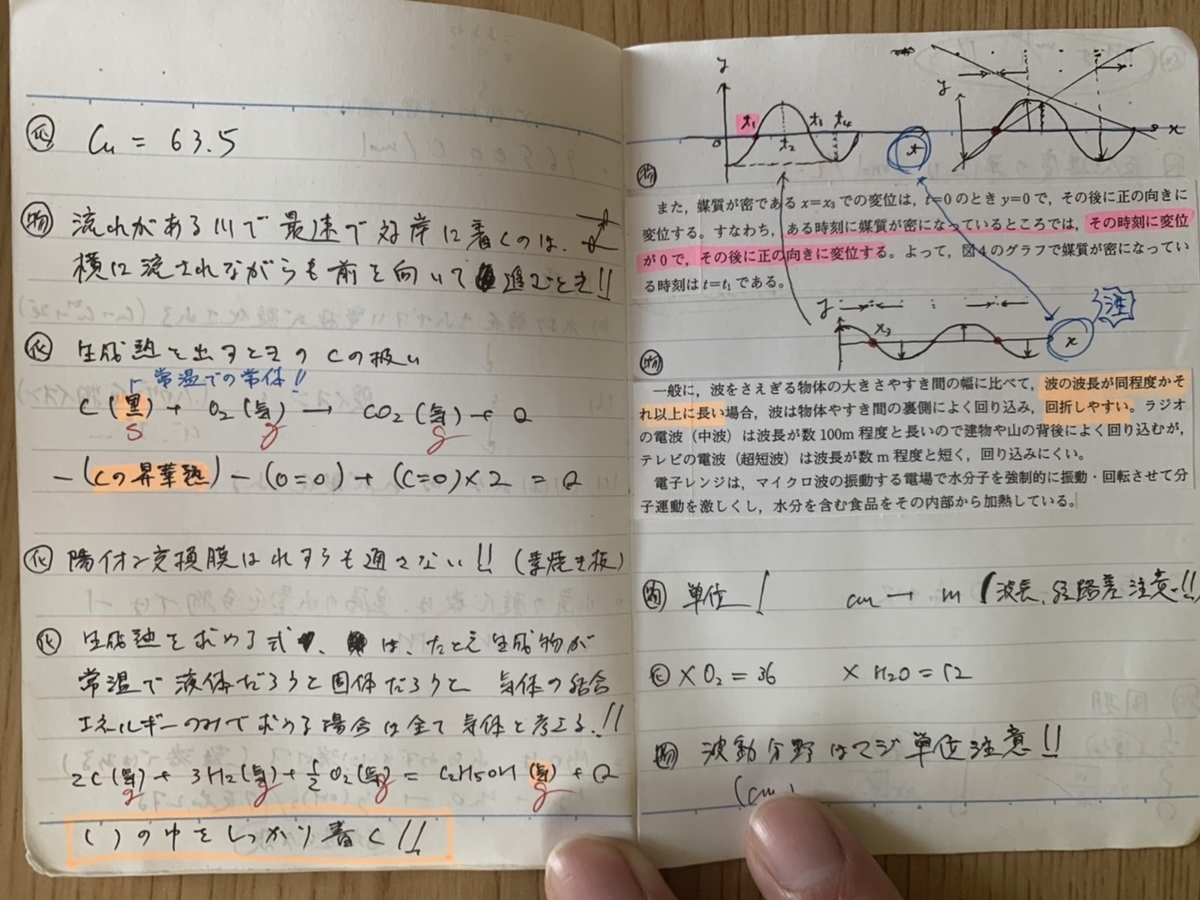 化 Cu = 63.5
物 流れがある川で最速で対岸に着くのは、
横に流されながらも前を向いて進むとき!!
化 生成熱を出すときのCの扱い
常温での常体!!
C(黒) + O2(気) → CO2(気) + Q
s g g
-(Cの昇華熱) - (O=O) + (C=O)×2 = Q
化 陽イオン交換膜はれすらも通さない!! (素焼き板)
化 生成熱を求める式、は、たとえ生成物が
常温で液体だろうと固体だろうと 気体の結合
エネルギーのみで求める場合は全て気体と考える!!
2C(気) + 3H2(気) + 1/2 O2(気) = C2H5OH(気) + Q
g g g g
( )の中をしっかり書く!!
y
t1 t3 t4
0 t2
t
y
x
物
また,媒質が密である x=x3 での変位は,t=0 のとき y=0 で,その後に正の向きに
変位する。すなわち,ある時刻に媒質が密になっているところでは,その時刻に変位
が 0 で,その後に正の向きに変位する。よって,図4のグラフで媒質が密になってい
る時刻は t=t1 である。
y
x3
x
注
物
一般に,波をさえぎる物体の大きさやすき間の幅に比べて,波の波長が同程度かそ
れ以上に長い場合,波は物体やすき間の裏側によく回り込み,回折しやすい。ラジオ
の電波(中波)は波長が数100m 程度と長いので建物や山の背後によく回り込むが,
テレビの電波(超短波)は波長が数m 程度と短く,回り込みにくい。
電子レンジは,マイクロ波の振動する電場で水分子を強制的に振動・回転させて分
子運動を激しくし,水分を含む食品をその内部から加熱している。
物 単位! cm → m (波長、経路差注意!!
化 ×O2 = 36 ×H2O = 12
物 波動分野はマジ単位注意!!
(cm)